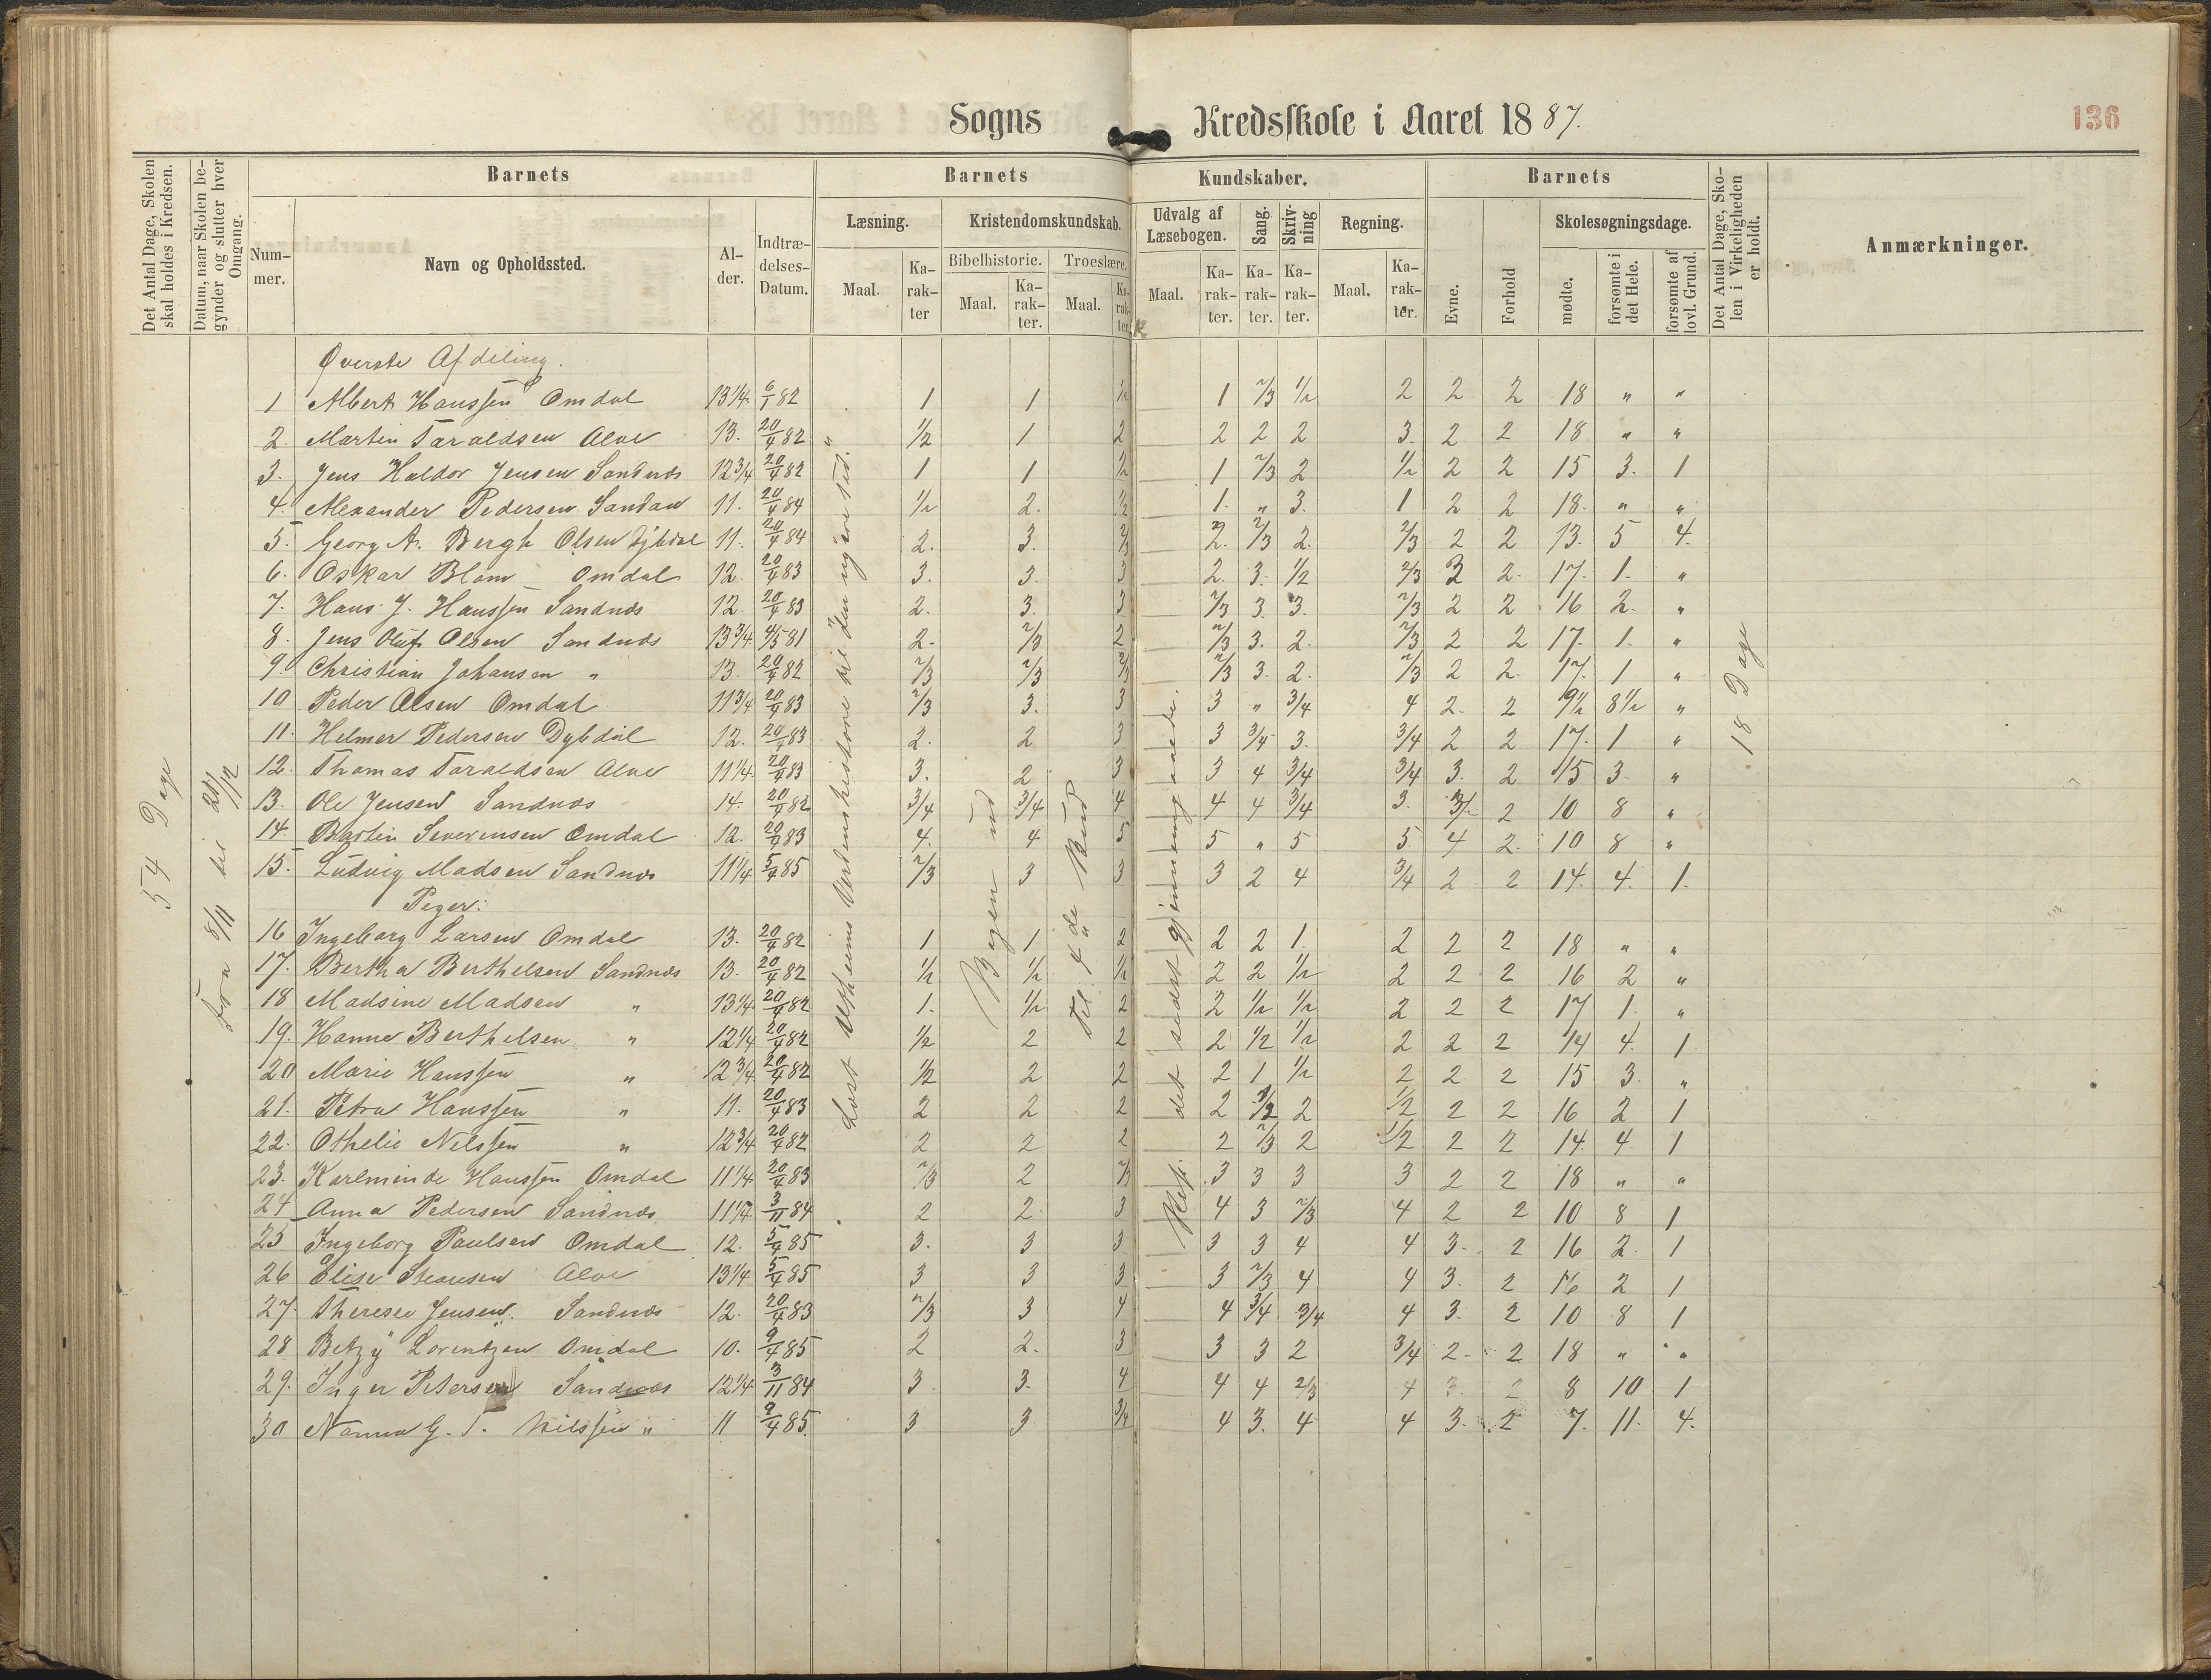 Sogns Kredsskole i Aaret 1887.
136
Det Antal Dage, Skolen skal holdes i Kredsen.
Datum, naar Skolen begynder og slutter hver Omgang.
Barnets
Nummer.
Navn og Opholdssted.
Alder.
Indtrædelses-Datum.
Barnets Kundskaber.
Læsning.
Maal.
Karakter
Kristendomskundskab.
Bibelhistorie.
Maal.
Karakter.
Troeslære.
Maal.
Karakter.
Udvalg af Læsebogen.
Maal.
Karakter.
Sang.
Karakter.
Skrivning
Karakter.
Regning.
Maal.
Karakter.
Barnets
Evne.
Forhold
Skolesøgningsdage.
mødte.
forsømte i det Hele.
forsømte af lovl. Grund.
Det Antal Dage, Skolen i Virkeligheden er holdt.
Anmærkninger.
54 Dage
Fra 8/11 til 21/12
Læst Verdenshistorie til den nyere tid.
Bogen ud
til 4de Bud
det sidst gjennemgaaede.
18 Dage
Øverste Afdeling.
1 Albert Hanssen Omdal 13 1/4 6/1 82 1 1 1/2 1 2/3 1/2 2 2 2 18 " "
2. Martin Taraldsen Alve 13. 20/4 82 1/2 1 2 2 2 2 3. 2 2 18 " "
3. Jens Haldor Jensen Sandnæs 12 3/4 20/4 82 1 1 1/2 1 2/3 2 1/2 2 2 15 3. 1
4. Alexander Pedersen Sandan 11. 20/4 84 1/2 2. 1/2 1. " 3. 1 2 2 18. " "
5. Georg A. Bergh Olsen Dybdal 11. 20/4 84 2. 3. 2/3 2. 2/3 2. 2/3 2 2 13. 5 4.
6. Oskar Blom Omdal 12. 20/4 83 3. 3. 3 2. 3. 1/2 2/3 3 2. 17. 1. "
7. Hans J. Hanssen Sandnæs 12. 20/4 83 2. 3. 3 2/3 3. 3. 2/3 2 2 16 2. "
8. Jens Oluf Olsen Sandnæs 13 3/4 4/5 81 2. 2/3 2 2/3 3. 2. 2/3 2 2 17. 1. "
9. Christian Johansen " 13. 20/4 82 2/3 2/3 2/3 2/3 3. 2. 2/3 2 2. 17. 1 "
10 Peder Olsen Omdal 11 3/4 20/4 83 2/3 3. 3 3 " 3/4 4 2. 2 9 1/2 8 1/2 "
11. Helmer Pedersen Dybdal 12. 20/4 83 2. 2 3 3 3/4 3. 3/4 2 2 17. 1 "
12. Thomas Taraldsen Alve 11 1/4 20/4 83 3. 2 3 3 4 3/4 3/4 3. 2 15 3 "
13. Ole Jensen Sandnæs 14. 20/4 82 3/4 3/4 4 4 4 3/4 3. 2 10 8 "
14. Bastin Severinsen Omdal 12. 20/4 83 4. 4 5 5 " 5 5. 4 2. 10 8 "
15. Ludvig Madsen Sandnæs 11 1/4 5/4 85 2/3 3 3 3 2 4 3/4 2 2 14. 4. 1.
Piger:
16 Ingeborg Larsen Omdal 13. 20/4 82 1 1 2 2 2 1. 2 2 2 18 " "
17. Bertha Berthelsen Sandnæs 13. 20/4 82 1/2 1/2 1/2 2 2 1/2 2 2 2 16 2 "
18 Madsine Madsen " 13 1/4 20/4 82 1. 1/2 2 2 1/2 1/2 2 2 2 17 1. "
19. Hanne Berthelsen " 12 1/4 20/4 82 1/2 2 2 2 1/2 1/2 2 2 2 14 4. 1
20 Marie Hanssen " 12 3/4 20/4 82 1/2 2 2 2 1 1/2 2 2 2 15 3. "
21. Petra Hanssen " 11. 20/4 83 2 2 2 2 1/2 2 1/2 2 2 16 2 1
22. Othelie Nilssen " 12 3/4 20/4 82 2 2 2 2 2/3 2 1/2 2 2 14. 4. 1
23. Karlminde Hanssen Omdal 11 1/4 20/4 83 2/3 2 2/3 3 3 3 3 2 2 18 " "
24 Anna Pedersen Sandnæs 11 1/4 3/11 84 2 2. 3 4 3 2/3 4 2 2 10 8 1
25 Ingeborg Paulsen Omdal 12. 5/4 85 3. 3 3 3 3 4 4 3. 2 16 2. 1
26 Elise Steansen Alve 13 1/4 5/4 85 3 3 3 3 2/3 4 4 3. 2 16 2 1
27. Therese Jensen. Sandnæs 12. 20/4 83 2/3 3 4 4 3/4 3/4 4 3. 2 10 8 1
28 Betzy Lorentzen Omdal 10. 9/4 85 2 2. 3 3 3 2 3/4 2. 2 18 " "
29. Inger Petersen Sandnæs 12 1/4 3/11 84 3. 3. 4 4 4 2/3 4 3. 2 8 10 1
30 Nanna G. T. Nilssen " 11 9/4 85. 3 3 3/4 4 3. 4 4 3. 2 7. 11. 4.